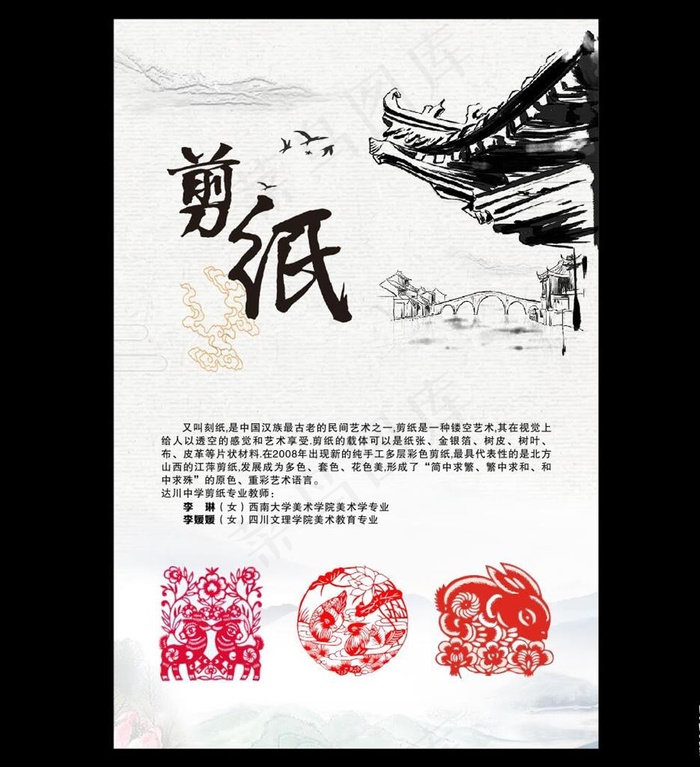 剪纸
又叫刻纸,是中国汉族最古老的民间艺术之一,剪纸是一种镂空艺术,其在视觉上
给人以透空的感觉和艺术享受.剪纸的载体可以是纸张、金银箔、树皮、树叶、
布、皮革等片状材料.在2008年出现新的纯手工多层彩色剪纸,最具代表性的是北方
山西的江萍剪纸,发展成为多色、套色、花色美,形成了“简中求繁、繁中求和、和
中求殊”的原色、重彩艺术语言。
达川中学剪纸专业教师：
李　琳（女）西南大学美术学院美术学专业
李媛媛（女）四川文理学院美术教育专业